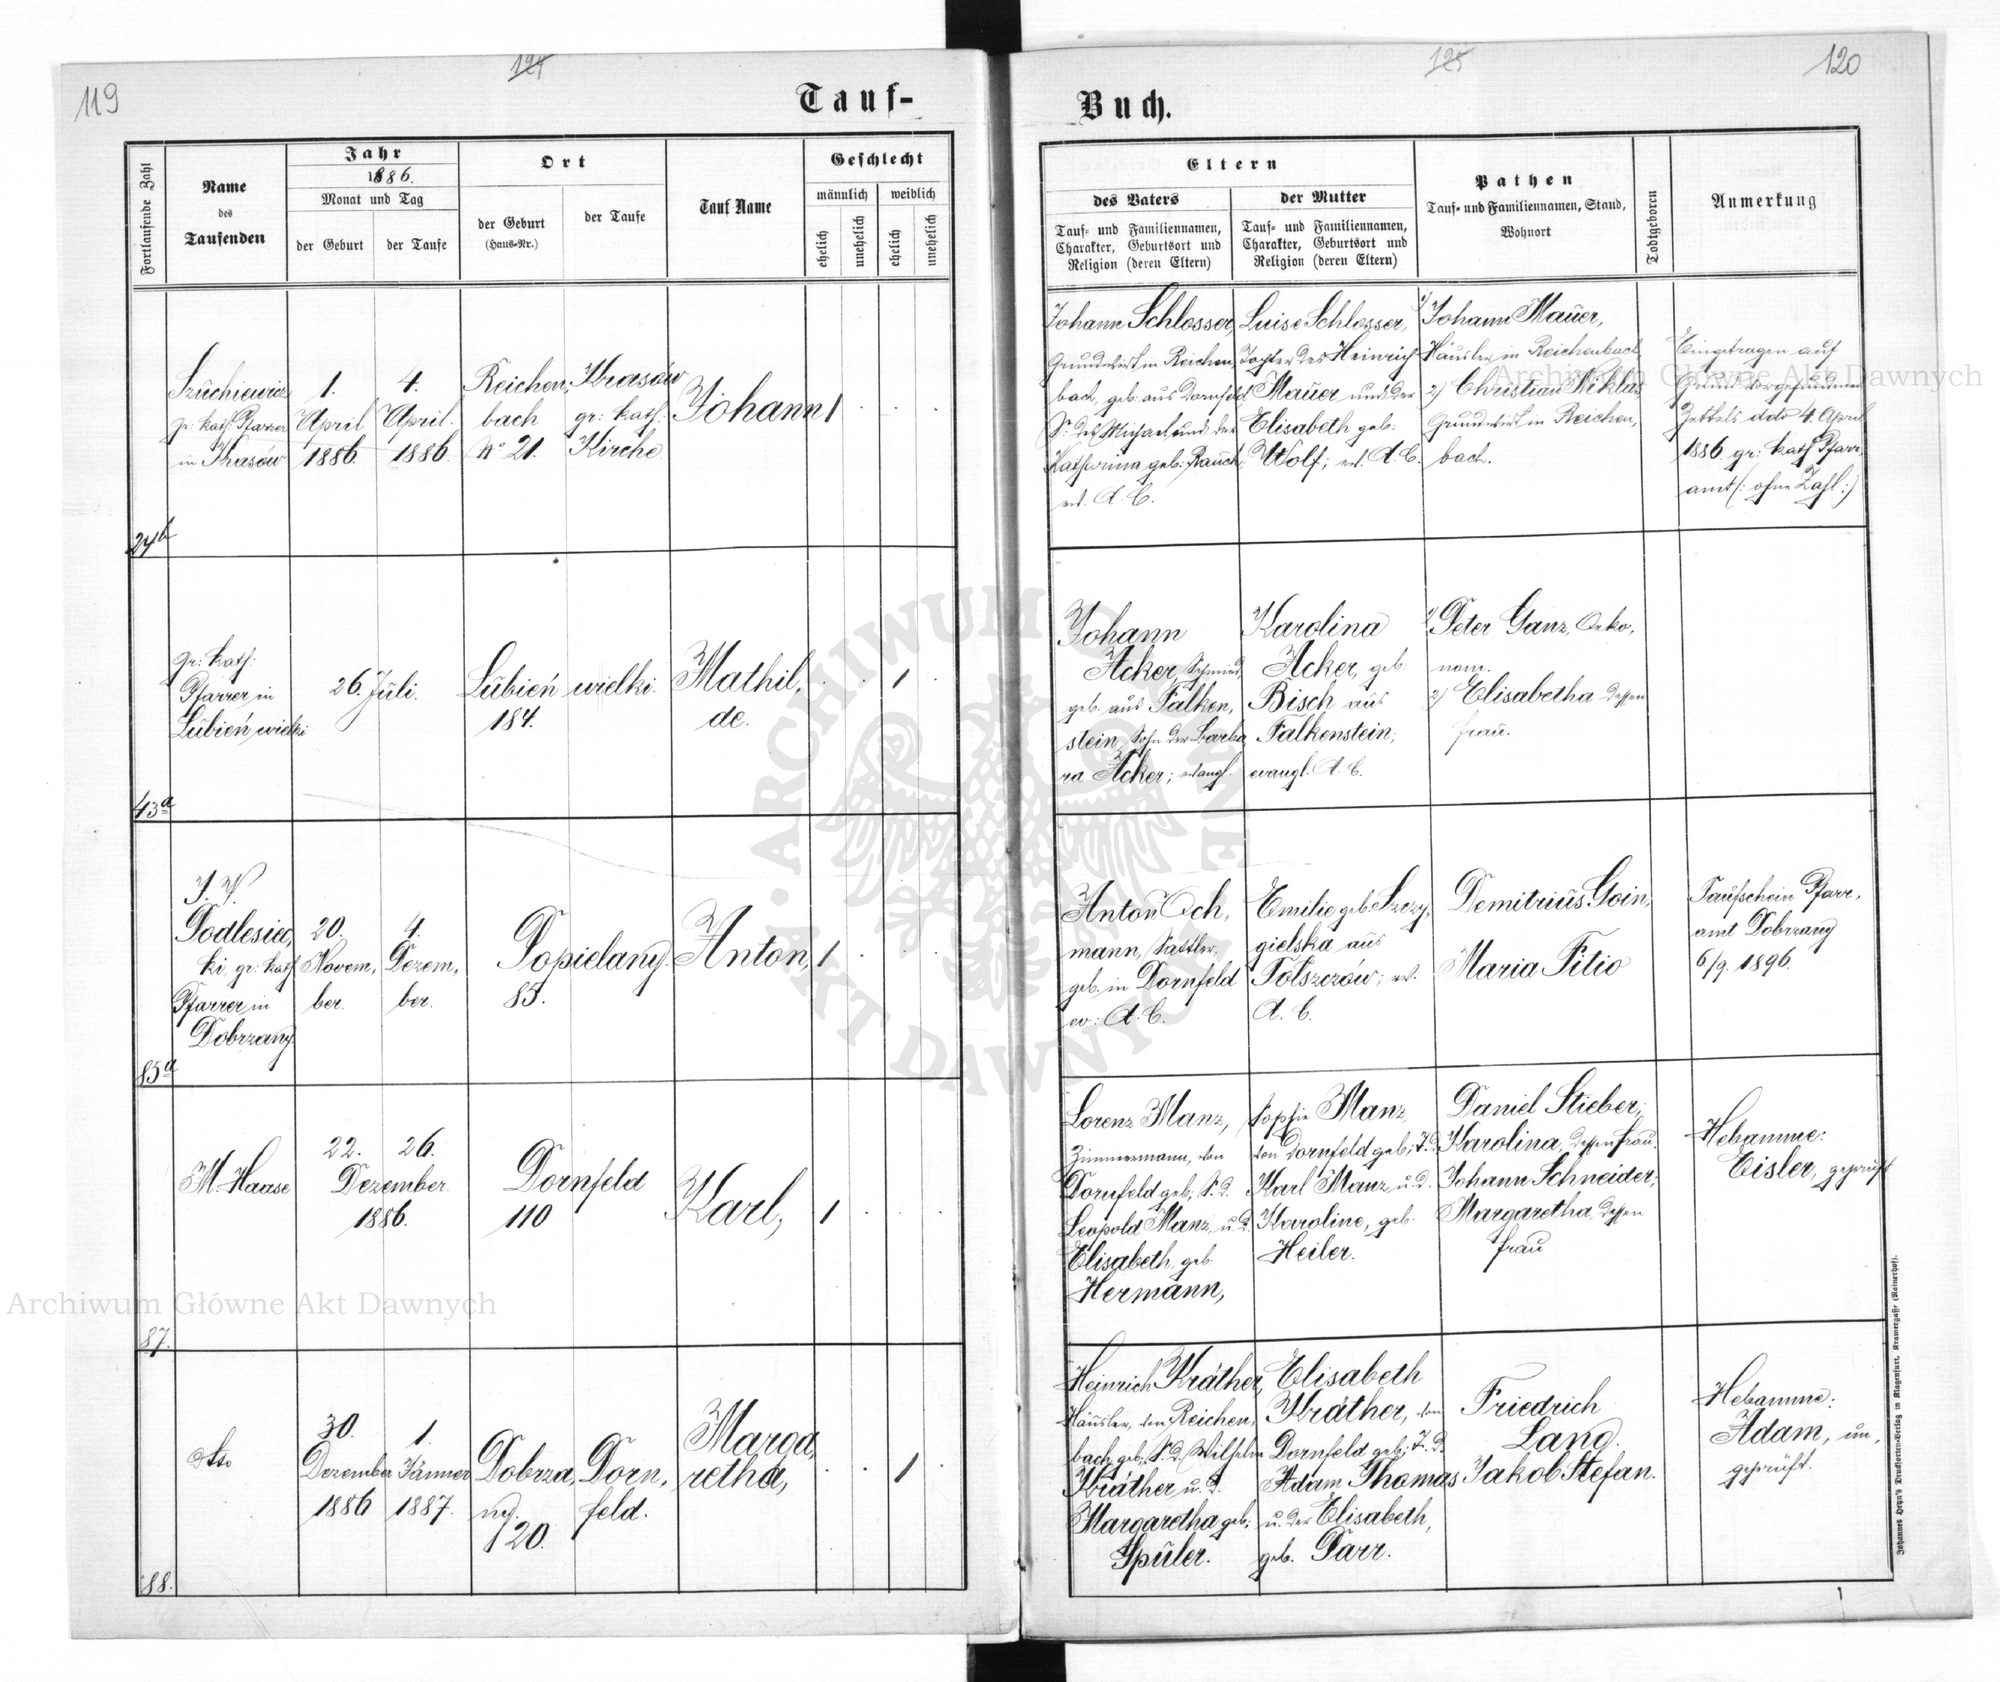 119
124
Tauf-
Fortlaufende Zahl
Name
des
Taufenden
Jahr
1886.
Monat und Tag
der Geburt
der Taufe
Ort
der Geburt
(Haus-Nr.)
der Taufe
Tauf Name
Geschlecht
männlich
weiblich
ehelich
unehelich
ehelich
unehelich
24b
Szuchiewicz
gr: kath: Pfarrer
in Krasów
1.
April
1886.
4.
April.
1886.
Reichen,
bach
No 21.
Krasów
gr: kath:
Kirche
Johann
1
43a
gr: kath:
Pfarrer in
Lubień wielki
26. Juli.
Lubień wielki.
184.
Mathil,
de.
1
85a
Podlesiec,
ki, gr: kath
Pfarrer in
Dobrzany.
20.
Novem,
ber.
4.
Dezem,
ber.
Popielany.
85.
Anton,
1
87.
M. Haase
22. 26.
Dezember
1886.
Dornfeld
110
Karl,
1
88.
dtto
30.
Dezember
1886
1.
Jänner
1887.
Dobrza,
ny.
120.
Dorn,
feld.
Marga,
retha,
1
125
120
Buch.
Eltern
des Vaters
Tauf- und Familiennamen,
Charakter, Geburtsort und
Religion (deren Eltern)
der Mutter
Tauf- und Familiennamen,
Charakter, Geburtsort und
Religion (deren Eltern)
Pathen
Tauf- und Familiennamen, Stand,
Wohnort
Todtgeboren
Anmerkung
Johann Schlosser,
Grundwirt in Reichen,
bach, geb: aus Dornfeld
S: des Michael und der
Katharina geb: Rauch,
ev. A. C.
Luise Schlosser,
Tochter des Heinrich
Mauer und der
Elisabeth geb:
Wolf; ev. A. C.
1) Johann Mauer,
Häusler in Reichenbach
2) Christian Niklas
Grundwirt in Reichen,
bach.
Eingetragen auf
Grund vorgefundenen
Zettels ddo 4. April
1886 gr: kath Pfarr,
amt (: ohne Zahl :)
Johann
Acker, Schmied,
geb. aus Falken,
stein, Sohn der Barba,
ra Acker; evangl.
Karolina
Acker, geb:
Bisch aus
Falkenstein,
evangl. A. C.
1) Peter Ganz, Oeko,
nom.
2) Elisabetha dessen
Frau.
Anton Och,
mann, Sattler,
geb. in Dornfeld
ev: A. C.
Emilie geb. Szczy,
gielska aus
Tolszczów; ev.
A. C.
Demitrius Goin,
Maria Fitio
Taufschein Pfarr,
amt Dobrzany
6/9. 1896.
Lorenz Manz,
Zimmermann, von
Dornfeld geb; S. d.
Leopold Manz, u. d.
Elisabeth, geb.
Hermann,
Sophie Manz,
von Dornfeld geb; T. d.
Karl Manz u. d.
Karoline, geb.
Heiler.
Daniel Stieber,
Karolina, dessen Frau.
Johann Schneider,
Margaretha, dessen
Frau
Hebamme:
Eisler, geprüft
Heinrich Kräther,
Häusler, von Reichen,
bach geb; S. d. Wilhelm
Kräther u. d.
Margaretha geb;
Spüler.
Elisabeth
Kräther, von
Dornfeld geb; T. d.
Adam Thomas
u. der Elisabeth,
geb. Parr.
Friedrich
Lang.
Jakob Stefan.
Hebamme:
Adam, un,
geprüft.
Johannes Heyn's Drucksorten-Verlag in Klagenfurt, Kramergasse (Rainerhof).
ARCHIWUM GŁÓWNE AKT DAWNYCH
Archiwum Główne Akt Dawnych
Archiwum Główne Akt Dawnych